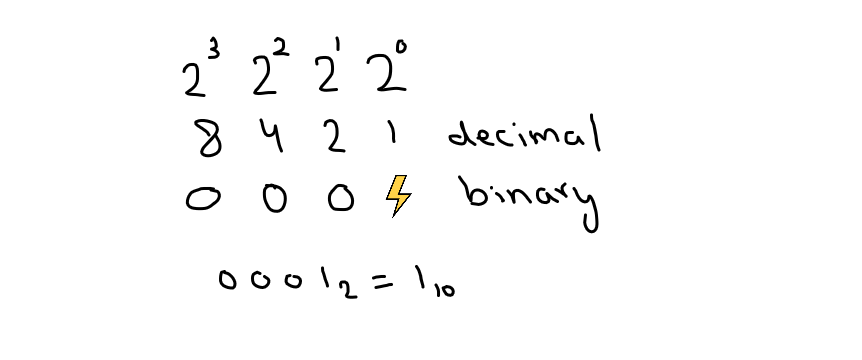 2³ 2² 2¹ 2⁰
8 4 2 1 decimal
0 0 0 ⚡ binary
0001₂ = 1₁₀